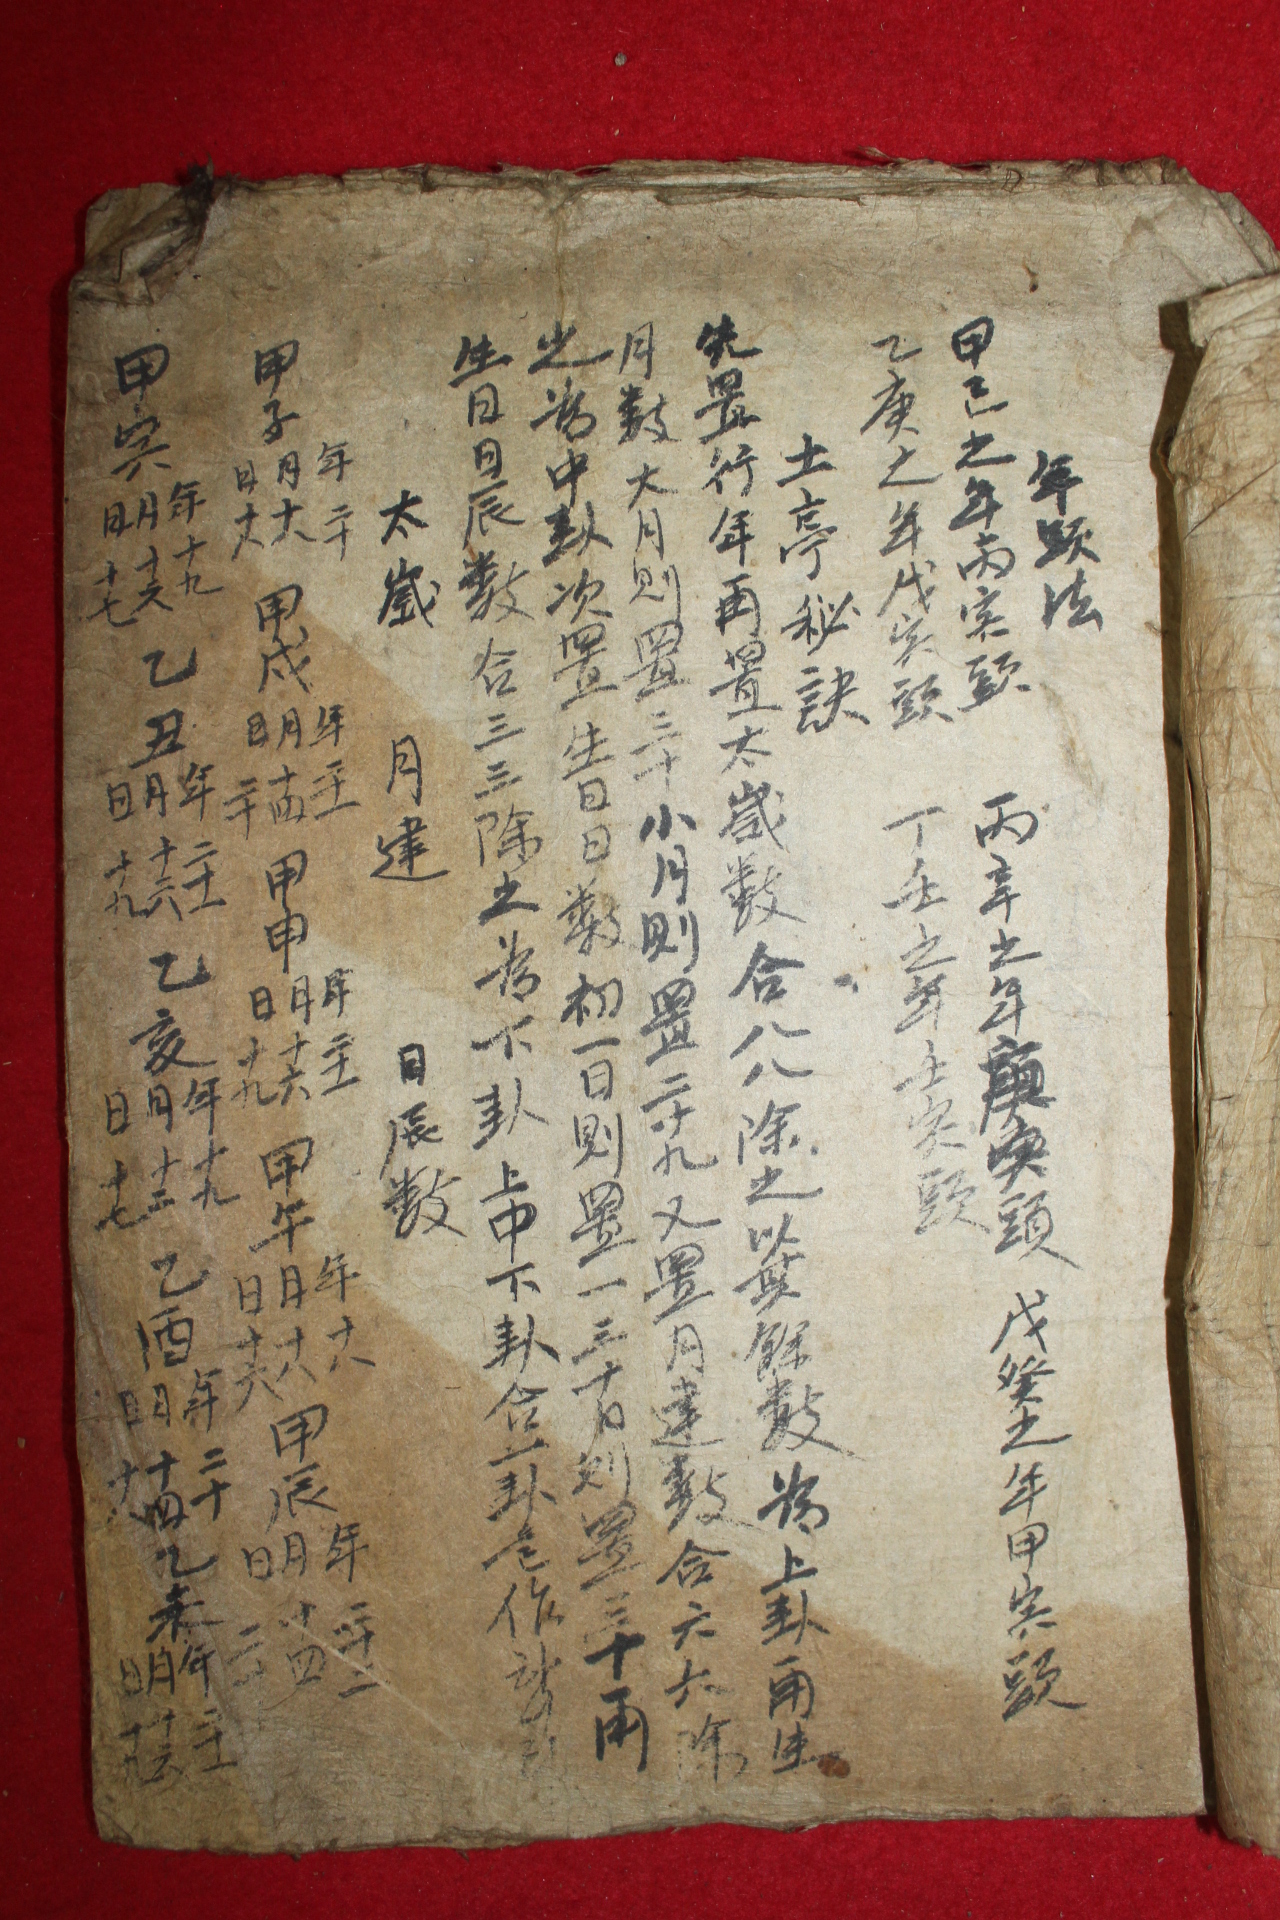 年頭法
甲己之年丙寅頭 丙辛之年庚寅頭 戊癸之年甲寅頭
乙庚之年戊寅頭 丁壬之年壬寅頭
土亭秘訣
先置行年再置太歲數合八八除之以其餘數爲上卦再生
月數大月則置三十小月則置二十九又置月建數合六六除
之爲中卦次置生日日數初一日則置一三十日則置三十再
生日日辰數合三三除之爲下卦上中下卦合一卦
太歲 月建 日辰數
甲子 年二十 月十八 日十八 甲戌 年二十二 月十四 日二十 甲申 年二十一 月十六 日十九 甲午 年十八 月十八 日十六 甲辰 年二十二 月十四
甲寅 年十九 月十六 日十七 乙丑 年二十一 月十六 日十九 乙亥 年十九 月十二 日十七 乙酉 年二十 月十四 日十八 乙未 年二十一 月十六 日十九